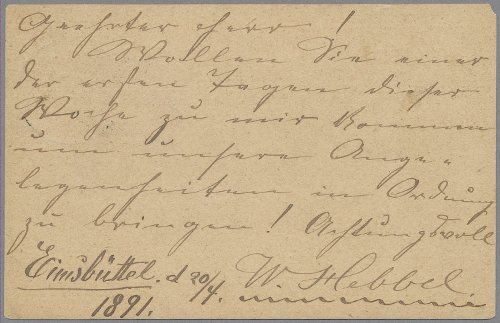 Geehrter Herr!
Wollen Sie einer
der ersten Tagen dieser
Woche zu mir kommen
um unsere Ange-
legenheiten in Ordnung
zu bringen! Achtungsvoll
Eimsbüttel. d 20/4. W. Hebbel.
1891.